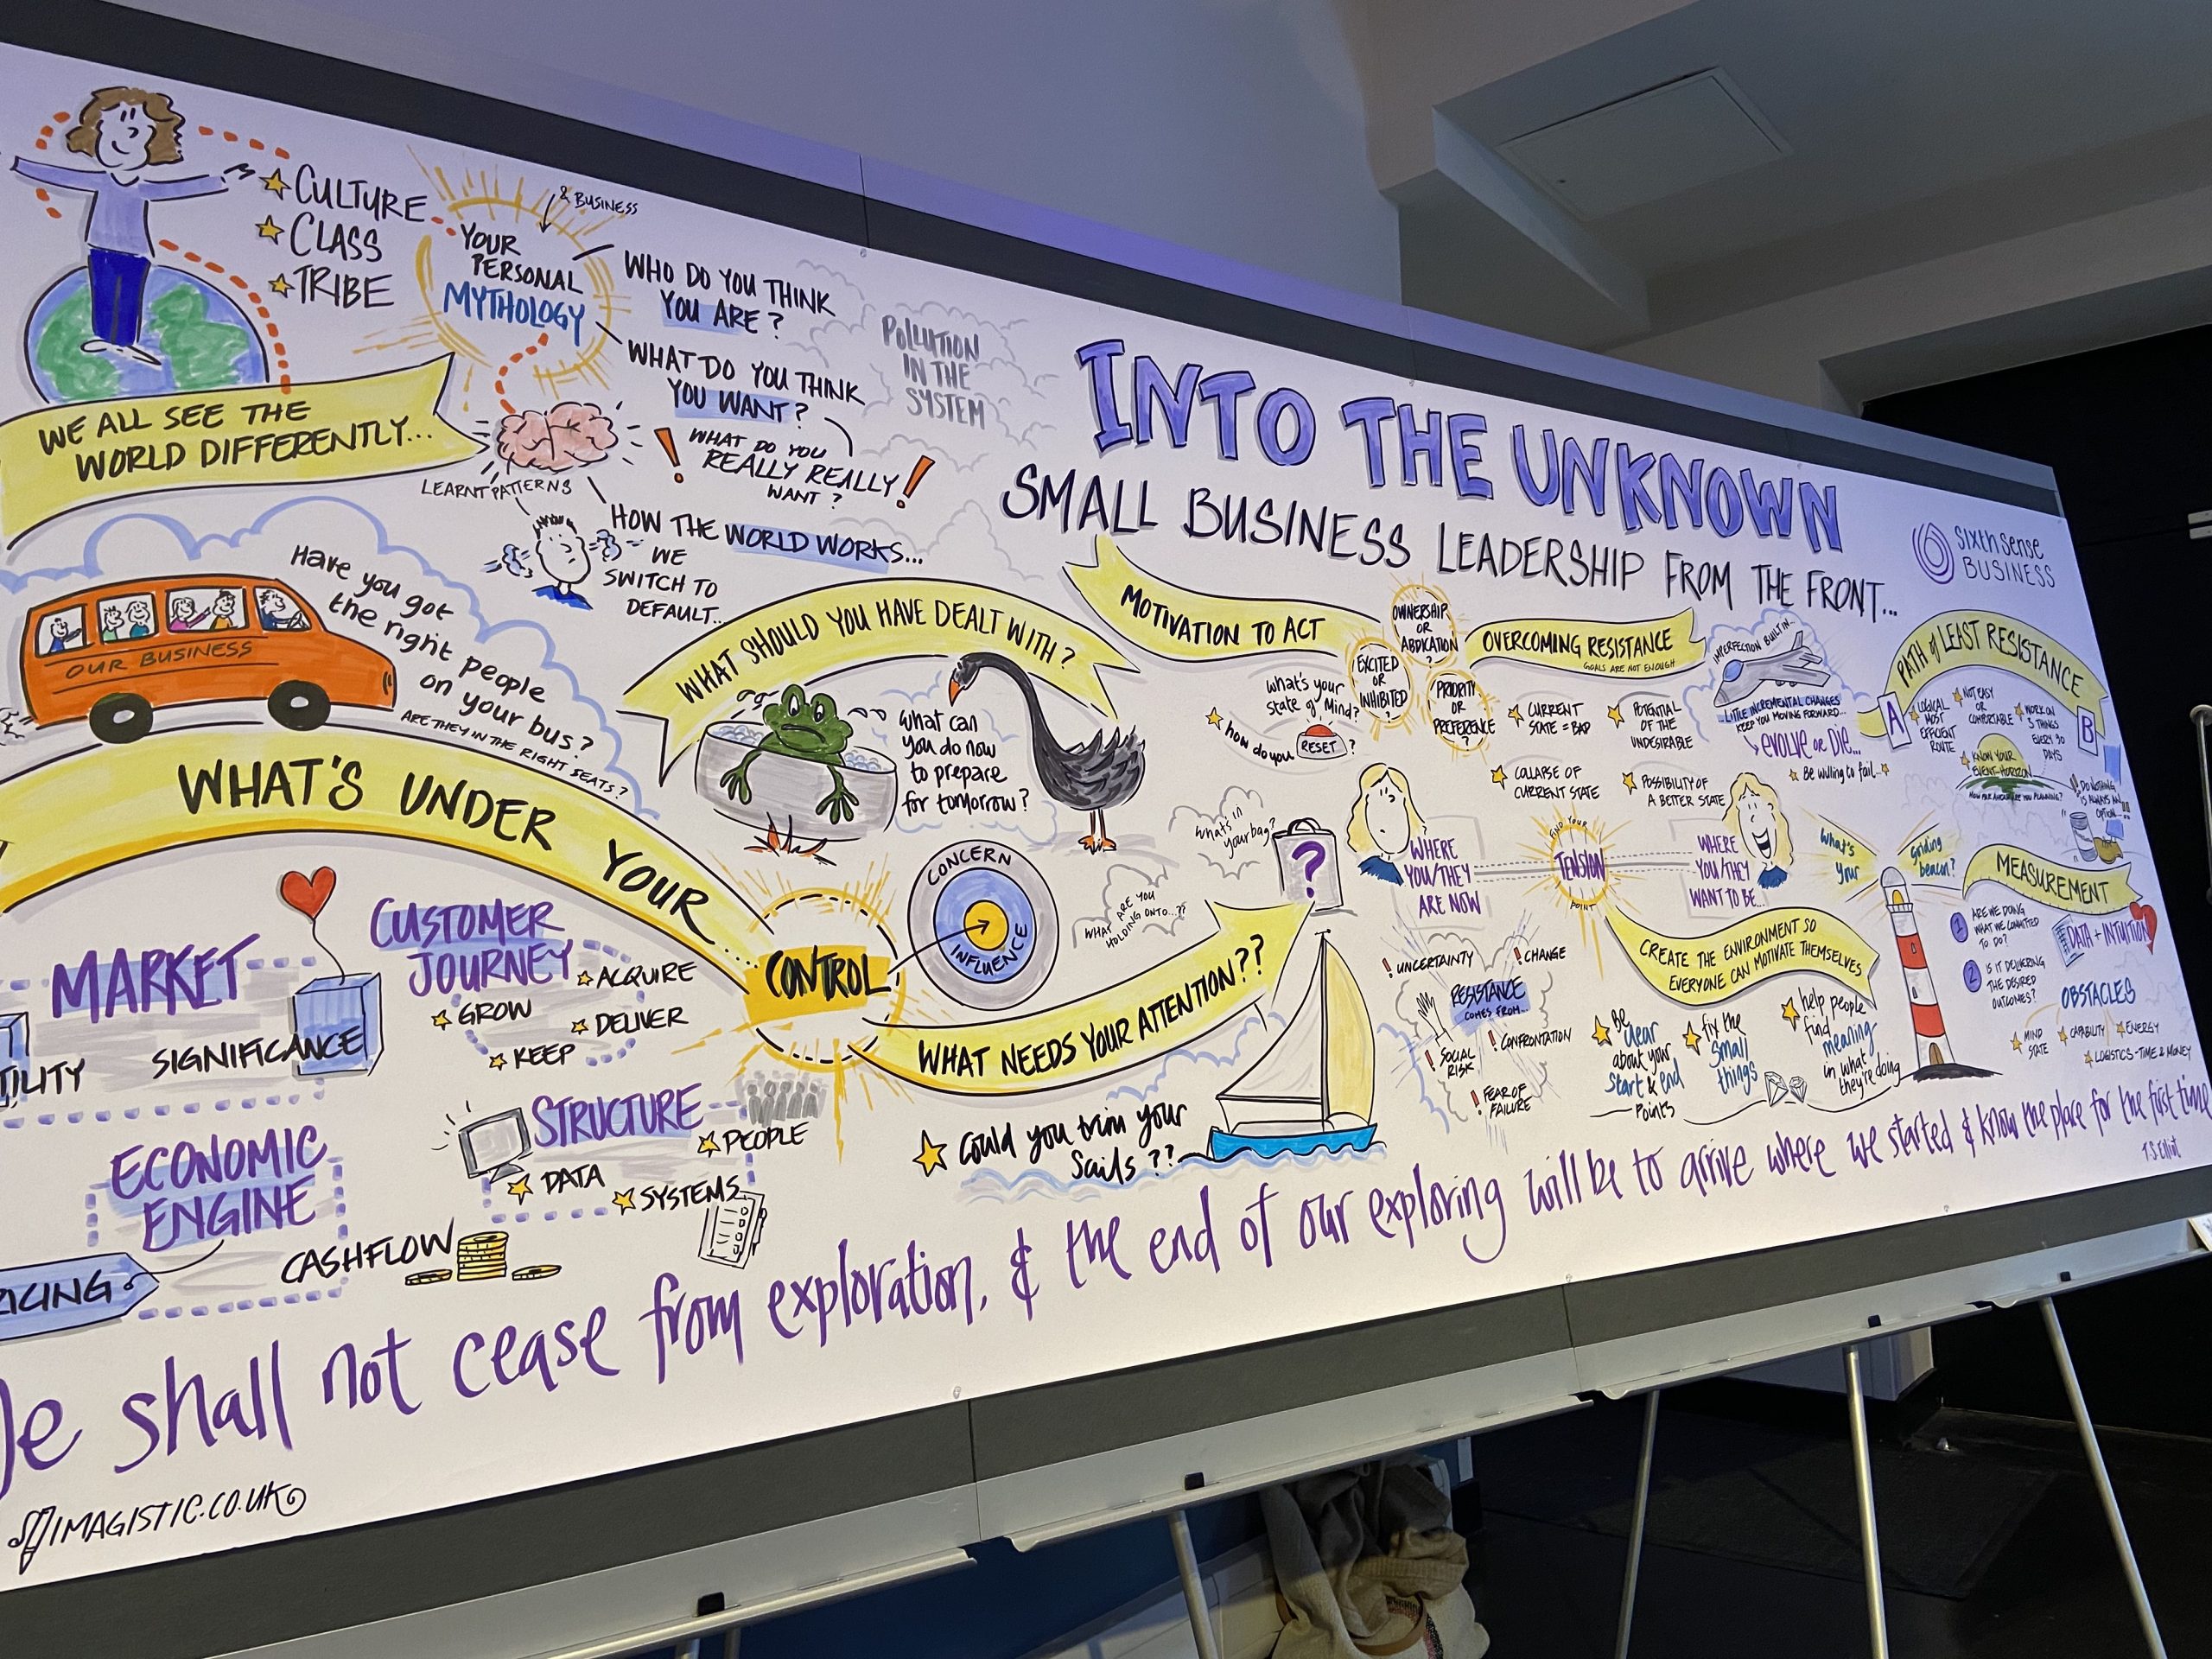 INTO THE UNKNOWN
SMALL BUSINESS LEADERSHIP FROM THE FRONT...
sixth sense
BUSINESS
CULTURE
CLASS
TRIBE
& BUSINESS
YOUR
PERSONAL
MYTHOLOGY
WHO DO YOU THINK
YOU ARE?
WHAT DO YOU THINK
YOU WANT?
! WHAT DO YOU
REALLY REALLY
WANT? !
POLLUTION
IN THE
SYSTEM
WE ALL SEE THE
WORLD DIFFERENTLY...
LEARNT PATTERNS
HOW THE WORLD WORKS...
WE
SWITCH TO
DEFAULT...
Have you got
the right people
on your bus?
ARE THEY IN THE RIGHT SEATS?
OUR BUSINESS
WHAT'S UNDER YOUR...
CONTROL
MARKET
TILITY
SIGNIFICANCE
CUSTOMER
JOURNEY
ACQUIRE
GROW
DELIVER
KEEP
ECONOMIC
ENGINE
RICING
CASHFLOW
STRUCTURE
PEOPLE
DATA
SYSTEMS
WHAT SHOULD YOU HAVE DEALT WITH?
What can
you do now
to prepare
for tomorrow?
CONCERN
INFLUENCE
WHAT ARE YOU
HOLDING ONTO...??
What's in
your bag?
?
WHAT NEEDS YOUR ATTENTION??
Could you trim your
Sails??
MOTIVATION TO ACT
What's your
State of Mind?
how do you RESET?
OWNERSHIP
OR
ABDICATION
?
EXCITED
OR
INHIBITED
?
PRIORITY
OR
PREFERENCE
?
OVERCOMING RESISTANCE
GOALS ARE NOT ENOUGH
CURRENT
STATE = BAD
POTENTIAL
OF THE
UNDESIRABLE
COLLAPSE OF
CURRENT STATE
POSSIBILITY OF
A BETTER STATE
IMPERFECTION BUILT IN...
...LITTLE INCREMENTAL CHANGES
KEEP YOU MOVING FORWARD...
evolve or DIE...
Be willing to fail
WHERE
YOU/THEY
ARE NOW
FIND YOUR
TENSION
POINT
WHERE
YOU/THEY
WANT TO BE...
! UNCERTAINTY
! CHANGE
RESISTANCE
COMES FROM...
! SOCIAL
RISK
! CONFRONTATION
! FEAR OF
FAILURE
CREATE THE ENVIRONMENT SO
EVERYONE CAN MOTIVATE THEMSELVES
Be
clear
about your
Start & end
Points
fix the
Small
things
help people
find
meaning
in what
they're doing
What's
your
Guiding
beacon?
PATH of LEAST RESISTANCE
A
LOGICAL
MOST
EFFICIENT
ROUTE
NOT EASY
OR
COMFORTABLE
WORK ON
3 THINGS
EVERY 90
DAYS
B
KNOW YOUR
EVENT-HORIZON
DO NOTHING
IS ALWAYS AN
OPTION...
MEASUREMENT
1 ARE WE DOING
WHAT WE COMMITTED
TO DO?
2 IS IT DELIVERING
THE DESIRED
OUTCOMES?
DATA + INTUITION
OBSTACLES
MIND
STATE
CAPABILITY
ENERGY
LOGISTICS - TIME & MONEY
We shall not cease from exploration, & the end of our exploring will be to arrive where we started & know the place for the first time
T.S. Elliot
IMAGISTIC.CO.UK